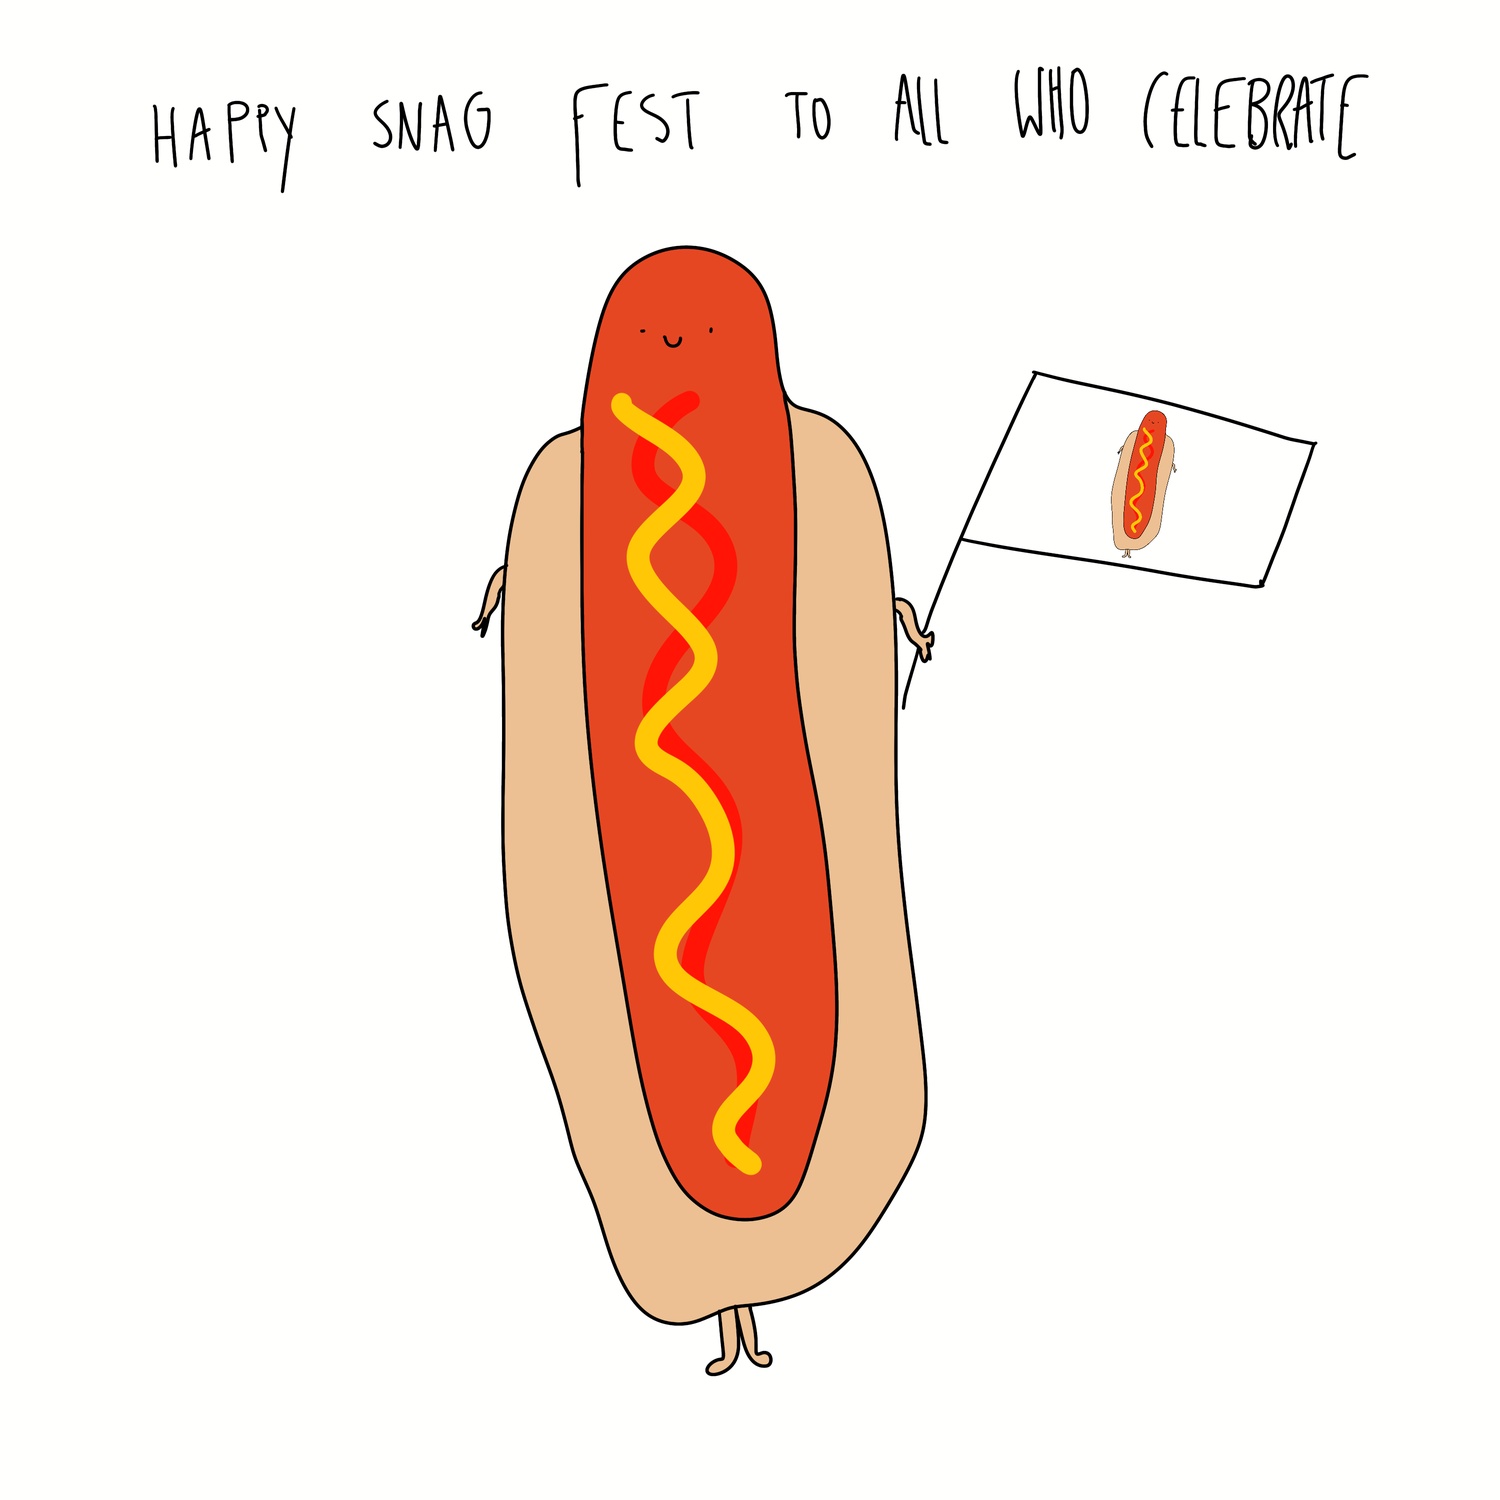 HAPPY SNAG FEST TO ALL WHO CELEBRATE